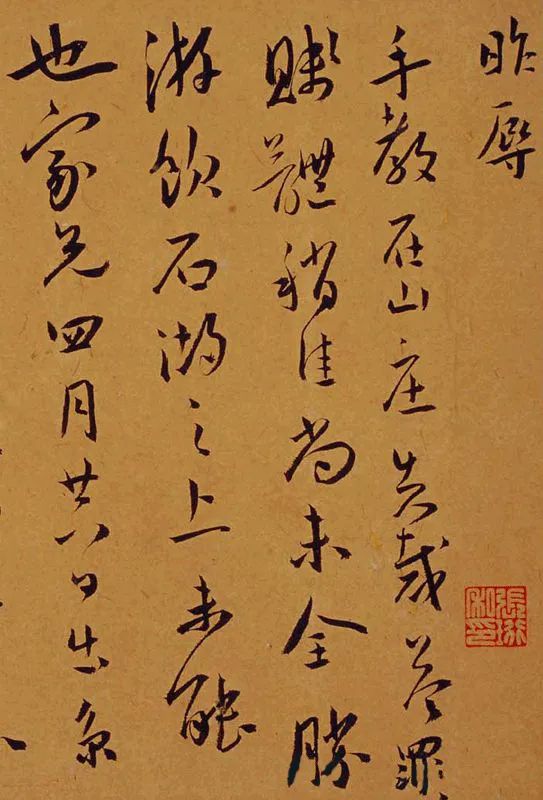 昨辱
手教在山庄失裁答罪
賤體稍佳尚未全勝
游飲石湖之上未能
也家兄四月廿八日出京